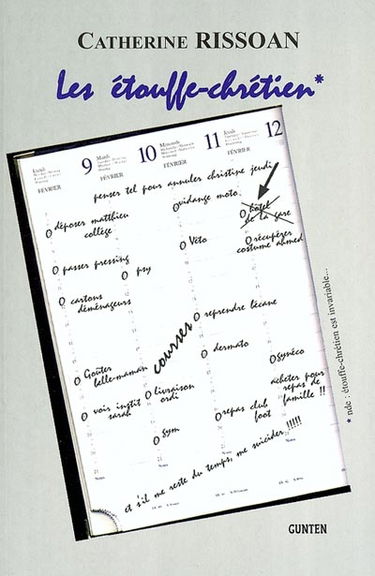 CATHERINE RISSOAN
Les étouffe-chrétien*
Lundi 9
FÉVRIER
Mardi 10
FÉVRIER
Mercredi 11
FÉVRIER
Jeudi 12
FÉVRIER
penser tel pour annuler christine jeudi
déposer matthieu
collège
passer pressing
cartons
déménageurs
Goûter
belle-maman
voir instit
sarah
psy
courses
livraison
ordi
gym
vidange moto
Véto
reprendre bécane
dermato
repas club
foot
hôtel
de la gare
récupérer
costume ahmed
gynéco
acheter pour
repas de
famille !!
et s'il me reste du temps, me suicider !!!!!
* ndc : étouffe-chrétien est invariable...
GUNTEN